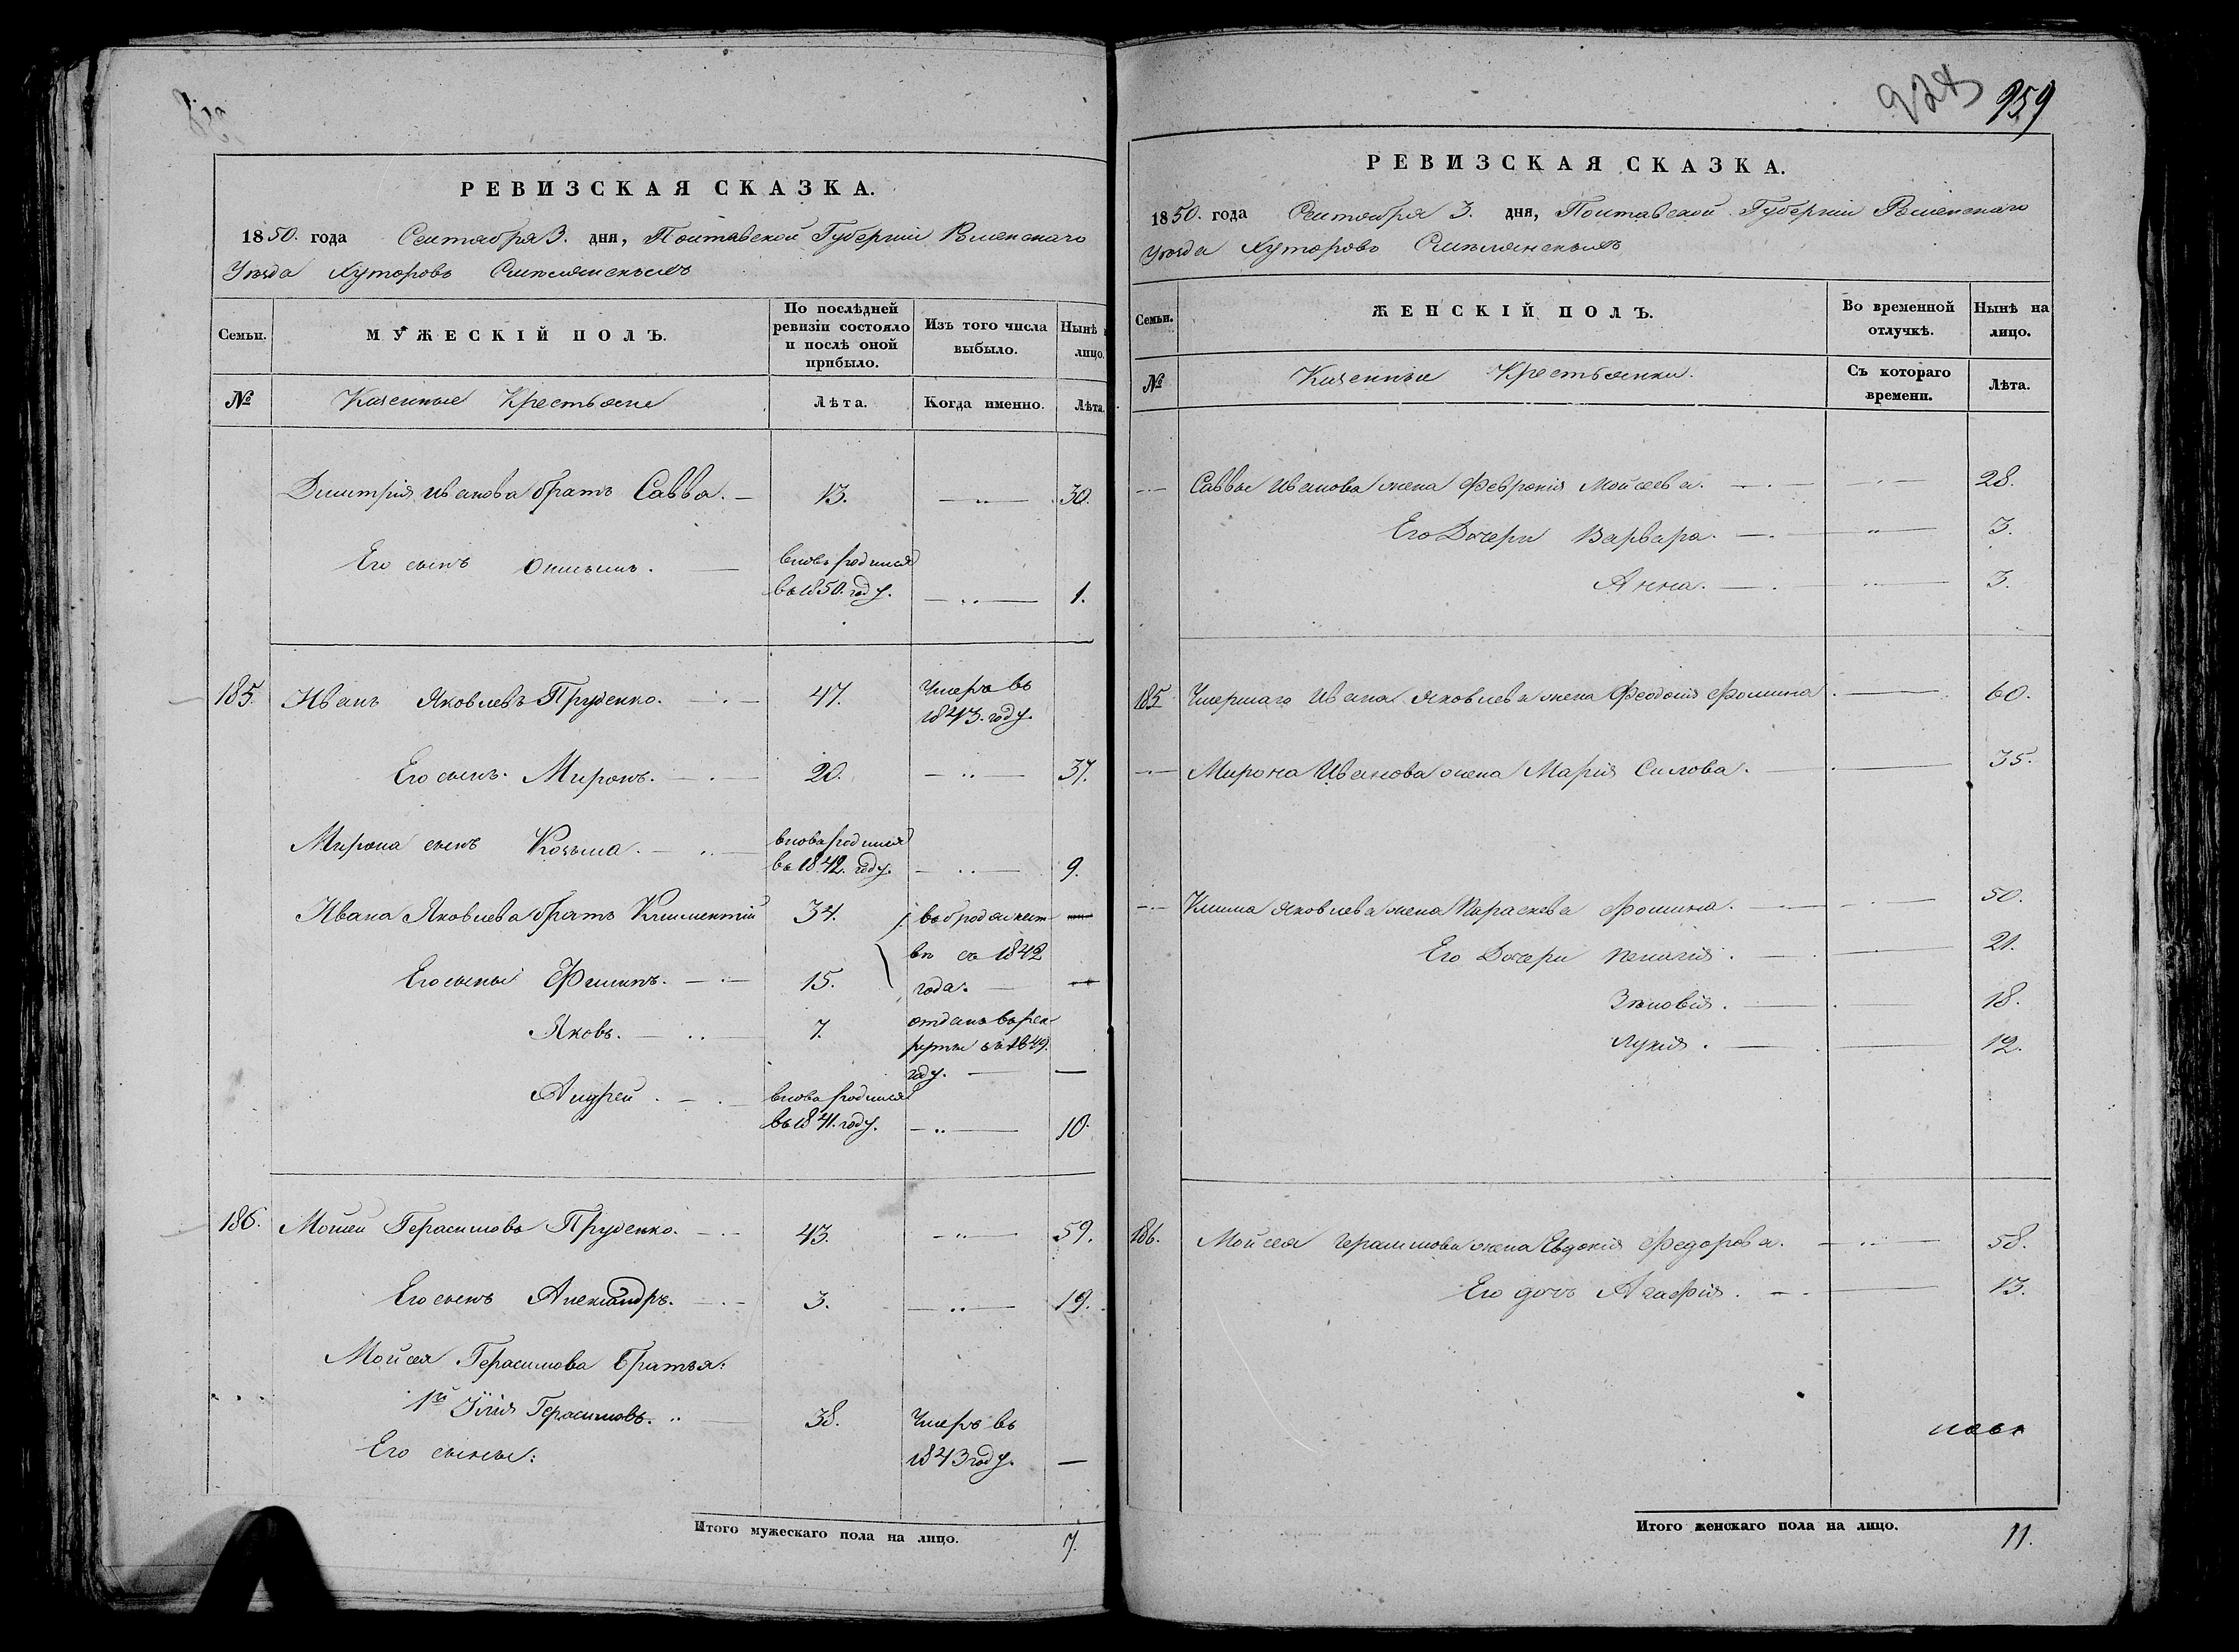 РЕВИЗСКАЯ СКАЗКА.
1850. года Сентября 3. дня, Полтавской Губерніи Роменскаго
Уѣзда Хуторовъ Смѣлянскихъ
Семьи.
МУЖЕСКІЙ ПОЛЪ.
По послѣдней ревизіи состояло и послѣ оной прибыло.
Изъ того числа выбыло.
Нынѣ
лицо.
№
Казенные Крестьяне
Лѣта.
Когда именно.
Лѣта.
Дмитрія Иванова братъ Савва. 13. 30.
Его сынъ вновь родился
въ 1850. году. 1.
185. Иванъ Яковлевъ Пруденко. 47. Умеръ въ
1843. году.
Его сынъ. Миронъ. 20. 37.
Мирона сынъ Козьма. вновь родился
въ 1842. году. 9.
Ивана Яковлева братъ Климентій 34. въ бродяжест
вѣ съ 1842
Его сыны Филипъ. 15. года.
Яковъ. 7. отданъ въ рек
руты въ 1849.
году.
Андрей. вновь родился
въ 1841. году. 10.
186. Мойсей Герасимовъ Пруденко. 43. 59.
Его сынъ Александръ. 3. 19.
Мойсея Герасимова братья:
1й Илія Герасимовъ. 38. Умеръ въ
Его сыны: 1843 году.
Итого мужескаго пола на лицо. 7.
924 959
РЕВИЗСКАЯ СКАЗКА.
1850. года Сентября 3. дня, Полтавской Губерніи Роменскаго
Уѣзда Хуторовъ Смѣлянскихъ
Семьи.
ЖЕНСКІЙ ПОЛЪ.
Во временной отлучкѣ.
Нынѣ на лицо.
№
Казенныя Крестьянки.
Съ котораго времени.
Лѣта.
Саввы Иванова жена Февронія Мойсеева. 28.
Его Дочери Варвара. 3.
Анна. 3.
185. Умершаго Ивана Яковлева жена Феодосія Фомина 60.
Мирона Иванова жена Марія Силова. 35.
Клима Яковлева жена Параскева Фомина. 50.
Его Дочери Пелагія. 21.
Зѣновія. 18.
Лукія. 12.
186. Мойсея Герасимова жена Евдокія Федорова. 58.
Его дочь Агафія. 13.
Итого женскаго пола на лицо. 11.